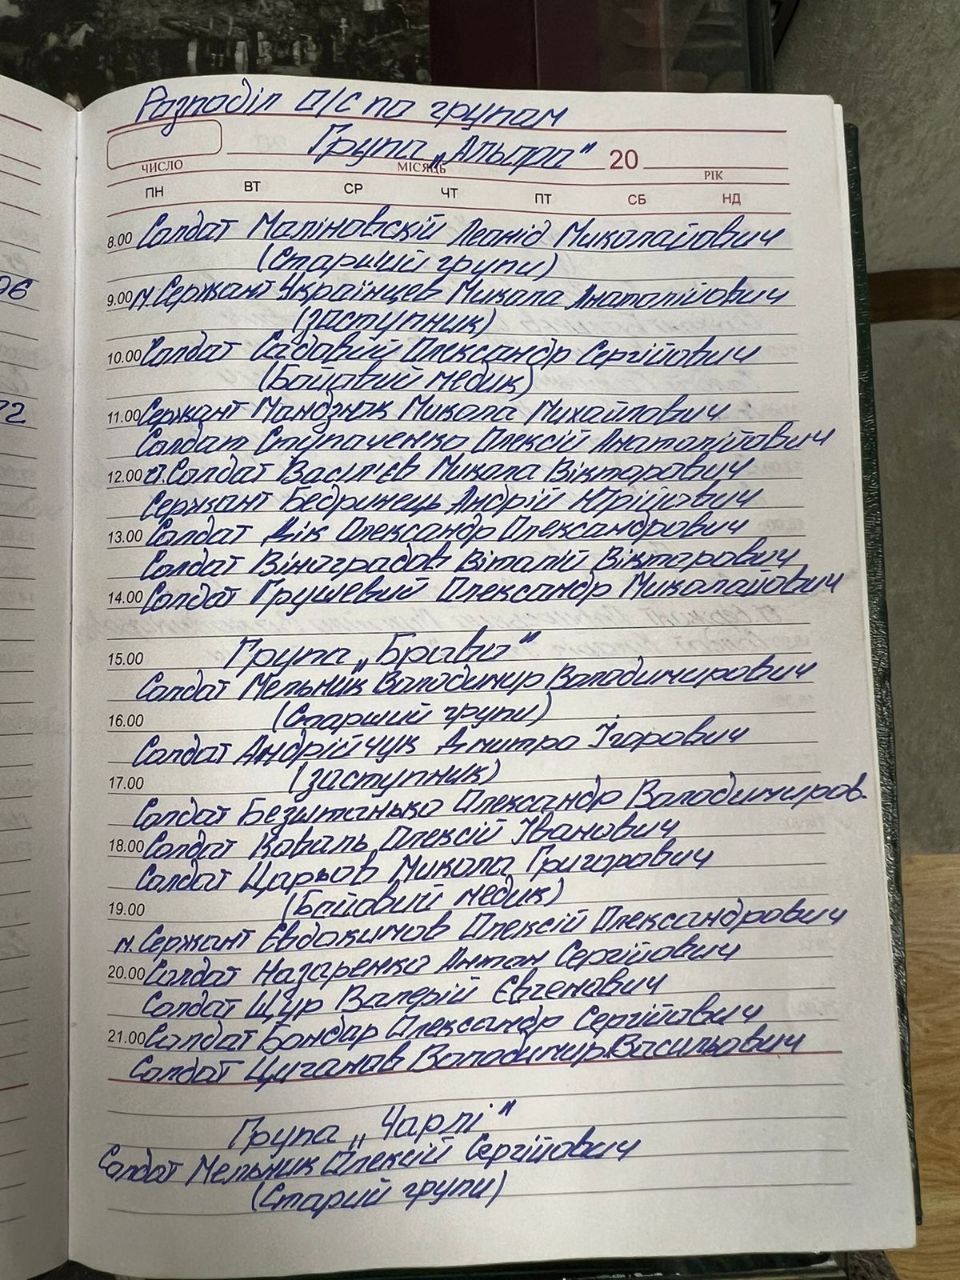 Розподіл о/с по групам
Група „Альфа"
20
ЧИСЛО МІСЯЦЬ РІК
ПН ВТ СР ЧТ ПТ СБ НД
8.00 Солдат Маліновскій Леонід Миколайович
(Старший групи)
9.00 м.Сержант Українцев Микола Анатолійович
(заступник)
10.00 Солдат Садовий Олександр Сергійович
(Бойовий медик)
11.00 Сержант Мандзюк Микола Михайлович
Солдат Ступаченко Олексій Анатолійович
12.00 ст.Солдат Василієв Микола Вікторович
Сержант Бедринець Андрій Юрійович
13.00 Солдат Дік Олександр Олександрович
Солдат Віноградов Віталій Вікторович
14.00 Солдат Грушевий Олександр Миколайович
15.00 Група „Браво"
Солдат Мельник Володимир Володимирович
16.00 (Старший групи)
Солдат Андрійчук Дмитро Ігорович
17.00 (заступник)
Солдат Безштанько Олександр Володимиров.
18.00 Солдат Коваль Олексій Іванович
Солдат Царьов Микола Григорович
19.00 (Бойовий медик)
м.Сержант Евдокимов Олексій Олександрович
20.00 Солдат Назаренко Антон Сергійович
Солдат Щур Валерій Євгенович
21.00 Солдат Бондар Олександр Сергійович
Солдат Циганов Володимир Васильович
Група „Чарлі"
Солдат Мельник Олексій Сергійович
(Старий групи)